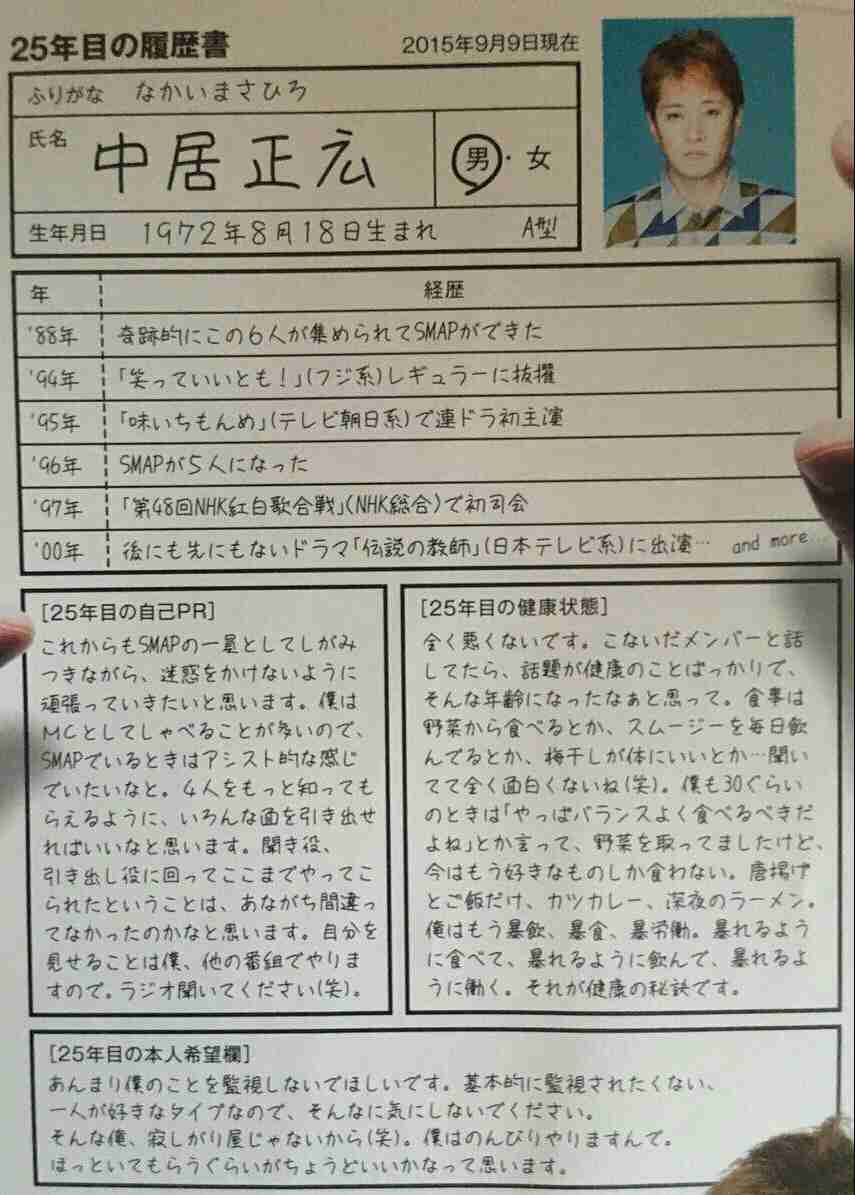 25年目の履歴書
2015年9月9日現在
ふりがな なかいまさひろ
氏名 中居正広 男・女
生年月日 1972年8月18日生まれ A型
年 経歴
'88年 奇跡的にこの6人が集められてSMAPができた
'94年 「笑っていいとも！」(フジ系)レギュラーに抜擢
'95年 「味いちもんめ」(テレビ朝日系)で連ドラ初主演
'96年 SMAPが5人になった
'97年 「第48回NHK紅白歌合戦」(NHK総合)で初司会
'00年 後にも先にもないドラマ「伝説の教師」(日本テレビ系)に出演… and more…
[25年目の自己PR]
これからもSMAPの一員としてしがみ
つきながら、迷惑をかけないように
頑張っていきたいと思います。僕は
MCとしてしゃべることが多いので、
SMAPでいるときはアシスト的な感じ
でいたいなと。4人をもっと知っても
らえるように、いろんな面を引き出せ
ればいいなと思います。聞き役、
引き出し役に回ってここまでやってこ
られたということは、あながち間違っ
てなかったのかなと思います。自分を
見せることは僕、他の番組でやりま
すので。ラジオ聞いてください(笑)。
[25年目の健康状態]
全く悪くないです。こないだメンバーと話
してたら、話題が健康のことばっかりで、
そんな年齢になったなぁと思って。食事は
野菜から食べるとか、スムージーを毎日飲
んでるとか、梅干しが体にいいとか…聞い
てて全く面白くないね(笑)。僕も30ぐらい
のときは「やっぱバランスよく食べるべきだ
よね」とか言って、野菜を取ってましたけど、
今はもう好きなものしか食わない。唐揚げ
とご飯だけ、カツカレー、深夜のラーメン。
俺はもう暴飲、暴食、暴労働。暴れるよう
に食べて、暴れるように飲んで、暴れるよ
うに働く。それが健康の秘訣です。
[25年目の本人希望欄]
あんまり僕のことを監視しないでほしいです。基本的に監視されたくない、
一人が好きなタイプなので、そんなに気にしないでください。
そんな俺、寂しがり屋じゃないから(笑)。僕はのんびりやりますんで。
ほっといてもらうぐらいがちょうどいいかなって思います。